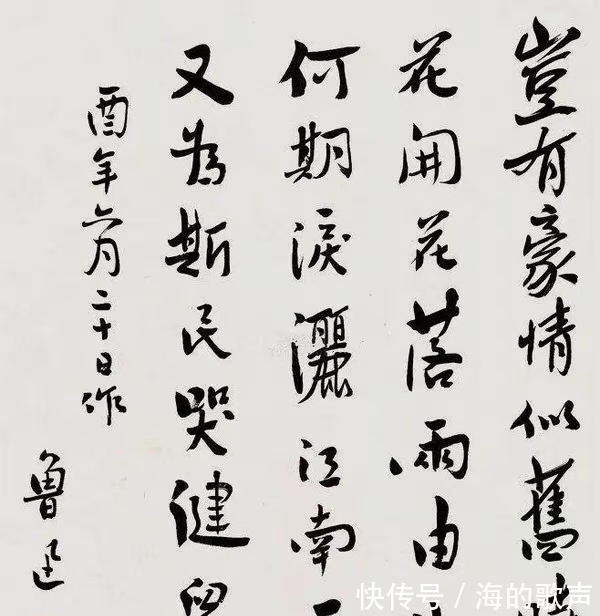 豈有豪情似舊
花開花落兩由
何期淚灑江南
又為斯民哭健
酉年六月二十日作
魯迅
快传号 / 海的歌声